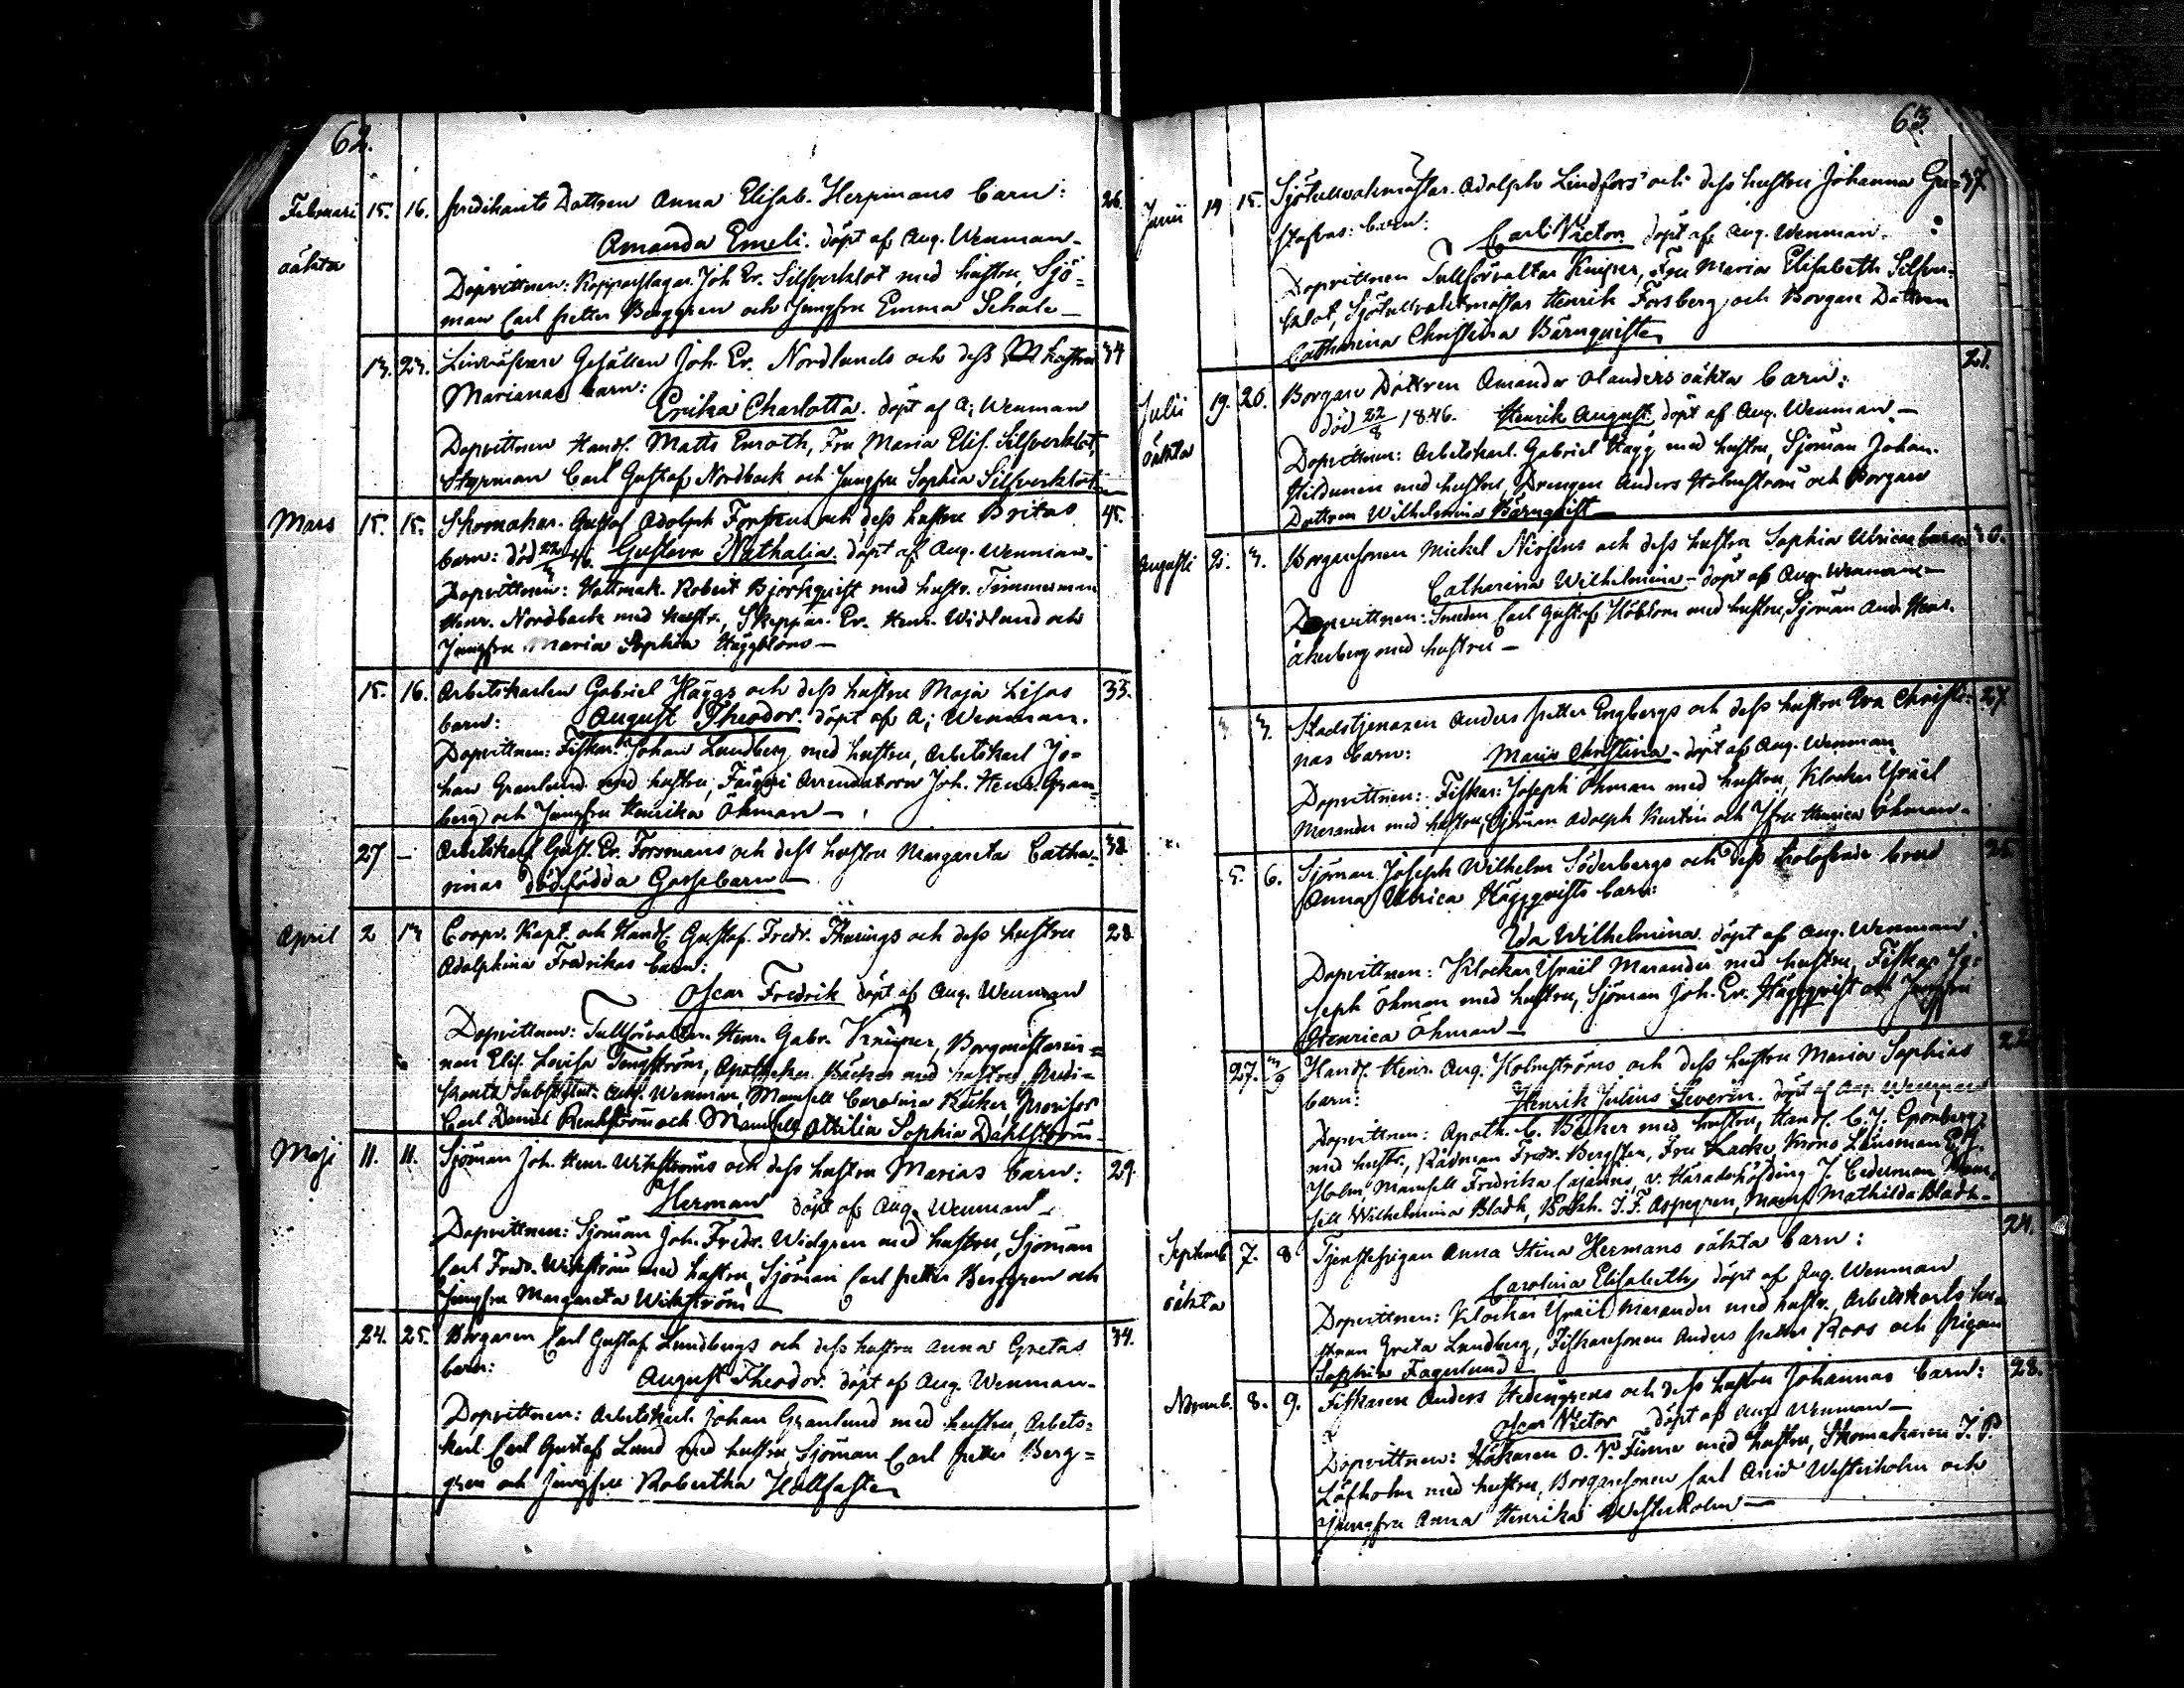 62.
Februari 15. 16. predikants Dottren Anna Elisab. Herpmans barn: 26.
oäkta
Amanda Emeli. döpt af Aug. Wenman-
Dopvittnen: Kopparslagar. Joh. Er. Silfverklot med hustru, Sjö=
man Carl Petter Berggren och Jungfru Emma Schale-
23. Linnväfvare Gesällen Joh. Er. Nordlunds och dess hustru 34
Marianas barn: Erika Charlotta. döpt af A; Wenman
Dopvittnen Handl. Matts Enroth, Fru Maria Elis. Silfverklot,
Styrman Carl Gustaf Nordback och Jungfru Sophia Silfverklot-
Mars 15. 15. Skomakar. Gustaf Adolph Forstens och dess hustru Britas 45.
barn: död 22/3 46. Gustava Nathalia. döpt af Aug. Wenman-
Dopvittnen: Hattmak. Robert Björkqvist med hustr. Timmerman
Henr. Nordback med hustr., Skeppar. Er. Henr. Widlund och
Jungfru Maria Sophia Häggblom-
15. 16. Arbetskarlen Gabriel Häggs och dess hustru Maja Lisas 33.
barn: August Theodor. döpt af A; Wenman.
Dopvittnen: Fiskar. Johan Lundberg med hustru, Arbetskarl Jo=
han Granlund med hustru, Färgeri Arrendatorn Joh. Henr. Gran=
berg och Jungfru Henrika Öhman-
27 - Arbetskarl Gust. Er. Forsmans och dess hustru Margareta Catha= 38
rinas dödfödda Gossebarn-
April 2 13 Coopv. Kapt. och Handl. Gustaf Fredr. Thurings och dess hustru 28
Adolphina Fredrikas barn:
Oscar Fredrik döpt af Aug. Wenman
Dopvittnen: Tullförvaltar. Henr. Gabr. Kniper, Borgmästarin=
nan Elis. Lovisa Tengström, Apothekar. Bäcker med hustru, Predi=
kants Substitut. Aug. Wenman, Mamsell Carolina Bäcker, Provisor
Carl Daniel Renhström och Mamsell Ottilia Sophia Dahlström-
Maji 11. 11. Sjöman Joh. Henr. Wikströms och dess hustru Marias barn: 29.
Herman döpt af Aug. Wenman-
Dopvittnen: Sjöman Joh. Fredr. Widgren med hustru, Sjöman
Carl Fredr. Wikström med hustru, Sjöman Carl Petter Berggren och
Jungfru Margareta Wikström-
24. 25. Borgaren Carl Gustaf Lundbergs och dess hustru Anna Gretas 34.
barn:
August Theodor. döpt af Aug. Wenman-
Dopvittnen: Arbetskarl. Johan Granlund med hustru, Arbets=
karl. Carl Gustaf Lund med hustru, Sjöman Carl Petter Berg=
gren och Jungfru Robertha Hallfast
63.
Junii 14 15. Sjötullvaktmästar. Adolph Lindfors' och dess hustru Johanna Gu= 37
stafvas: barn:
Carl Victor döpt af Aug. Wenman-
Dopvittnen Tullförvaltar Kniper, Fru Maria Elisabeth Silfver=
klot, Sjötullvaktmästar Henrik Forsberg och Borgare Dottren
Catharina Christina Bärnqvist
Julii 19. 20. Borgare Dottren Amanda Olanders oäkta barn: 21.
oäkta
död 22/8 1846. Henrik August. döpt af Aug. Wenman-
Dopvittnen: Arbetskarl. Gabriel Hägg med hustru, Sjöman Johan
Hildunen med hustru, Drengen Anders Holmström och Borgare
Dottren Wilhelmina Bärnqvist-
Augusti 2. 3. Borgaresonen Mickel Nissens och dess hustru Sophia Ulricas barn 30.
Catharina Wilhelmina- döpt af Aug. Wenman-
Dopvittnen: Smeden Carl Gustaf Höblom med hustru, Sjöman And. Henr.
Åkerberg med hustru-
3. 3. Stadstjenaren Anders Petter Engbergs och dess hustru Eva Christi= 27.
nas barn: Maria Christina- döpt af Aug. Wenman
Dopvittnen: Fiskar: Joseph Öhman med hustru, Klockar Israel
Merander med hustru, Sjöman Adolph Kurtin och Jfru Henrica Öhman-
5. 6. Sjöman Joseph Wilhelm Söderbergs och dess trolofvade brud 25.
Anna Ulrica Häggqvists barn:
Ida Wilhelmina. döpt af Aug. Wenman.
Dopvittnen: Klockar Israel Merander med hustru, Fiskar Jo=
seph Öhman med hustru, Sjöman Joh. Er. Häggqvist och Jungfru
Henrica Öhman-
27. 3/9 Handl. Henr. Aug. Holmströms och dess hustru Maria Sophias 22
barn: Henrik Julius Severin. döpt af Aug. Wenman
Dopvittnen: Apoth. C. Bäcker med hustru, Handl. C. J.
med hustr., Rådman Fredr. Bergsten, Fru Krons Länsman
Holm, Mamsell Fredrika Cajanus, v. Häradshöfding J. Cederman, Mam=
sell Wilhelmina Bladh, Bokh. J. F. Aspegren, Mams. Mathilda Bladh-
Septemb. 7. 8 Tjenstepigan Anna Stina Hermans oäkta barn: 24.
oäkta
Carolina Elisabeth, döpt af Aug. Wenman
Dopvittnen: Klockar Israel Merander med hustr., Arbetskarls hu=
strun Greta Lundberg, Fiskaresonen Anders Petter Roos och Pigan
Sophia Fagerlund-
Novemb. 8. 9. Fiskaren Anders Hedengrens och dess hustru Johannas barn: 28.
Oscar Victor döpt af Aug. Wenman-
Dopvittnen: Hökaren O. W. Finne med hustru, Skomakaren J. P.
Löfholm med hustru, Borgaresonen Carl Arvid Westerholm och
Jungfru Anna Henrika Westerholm-